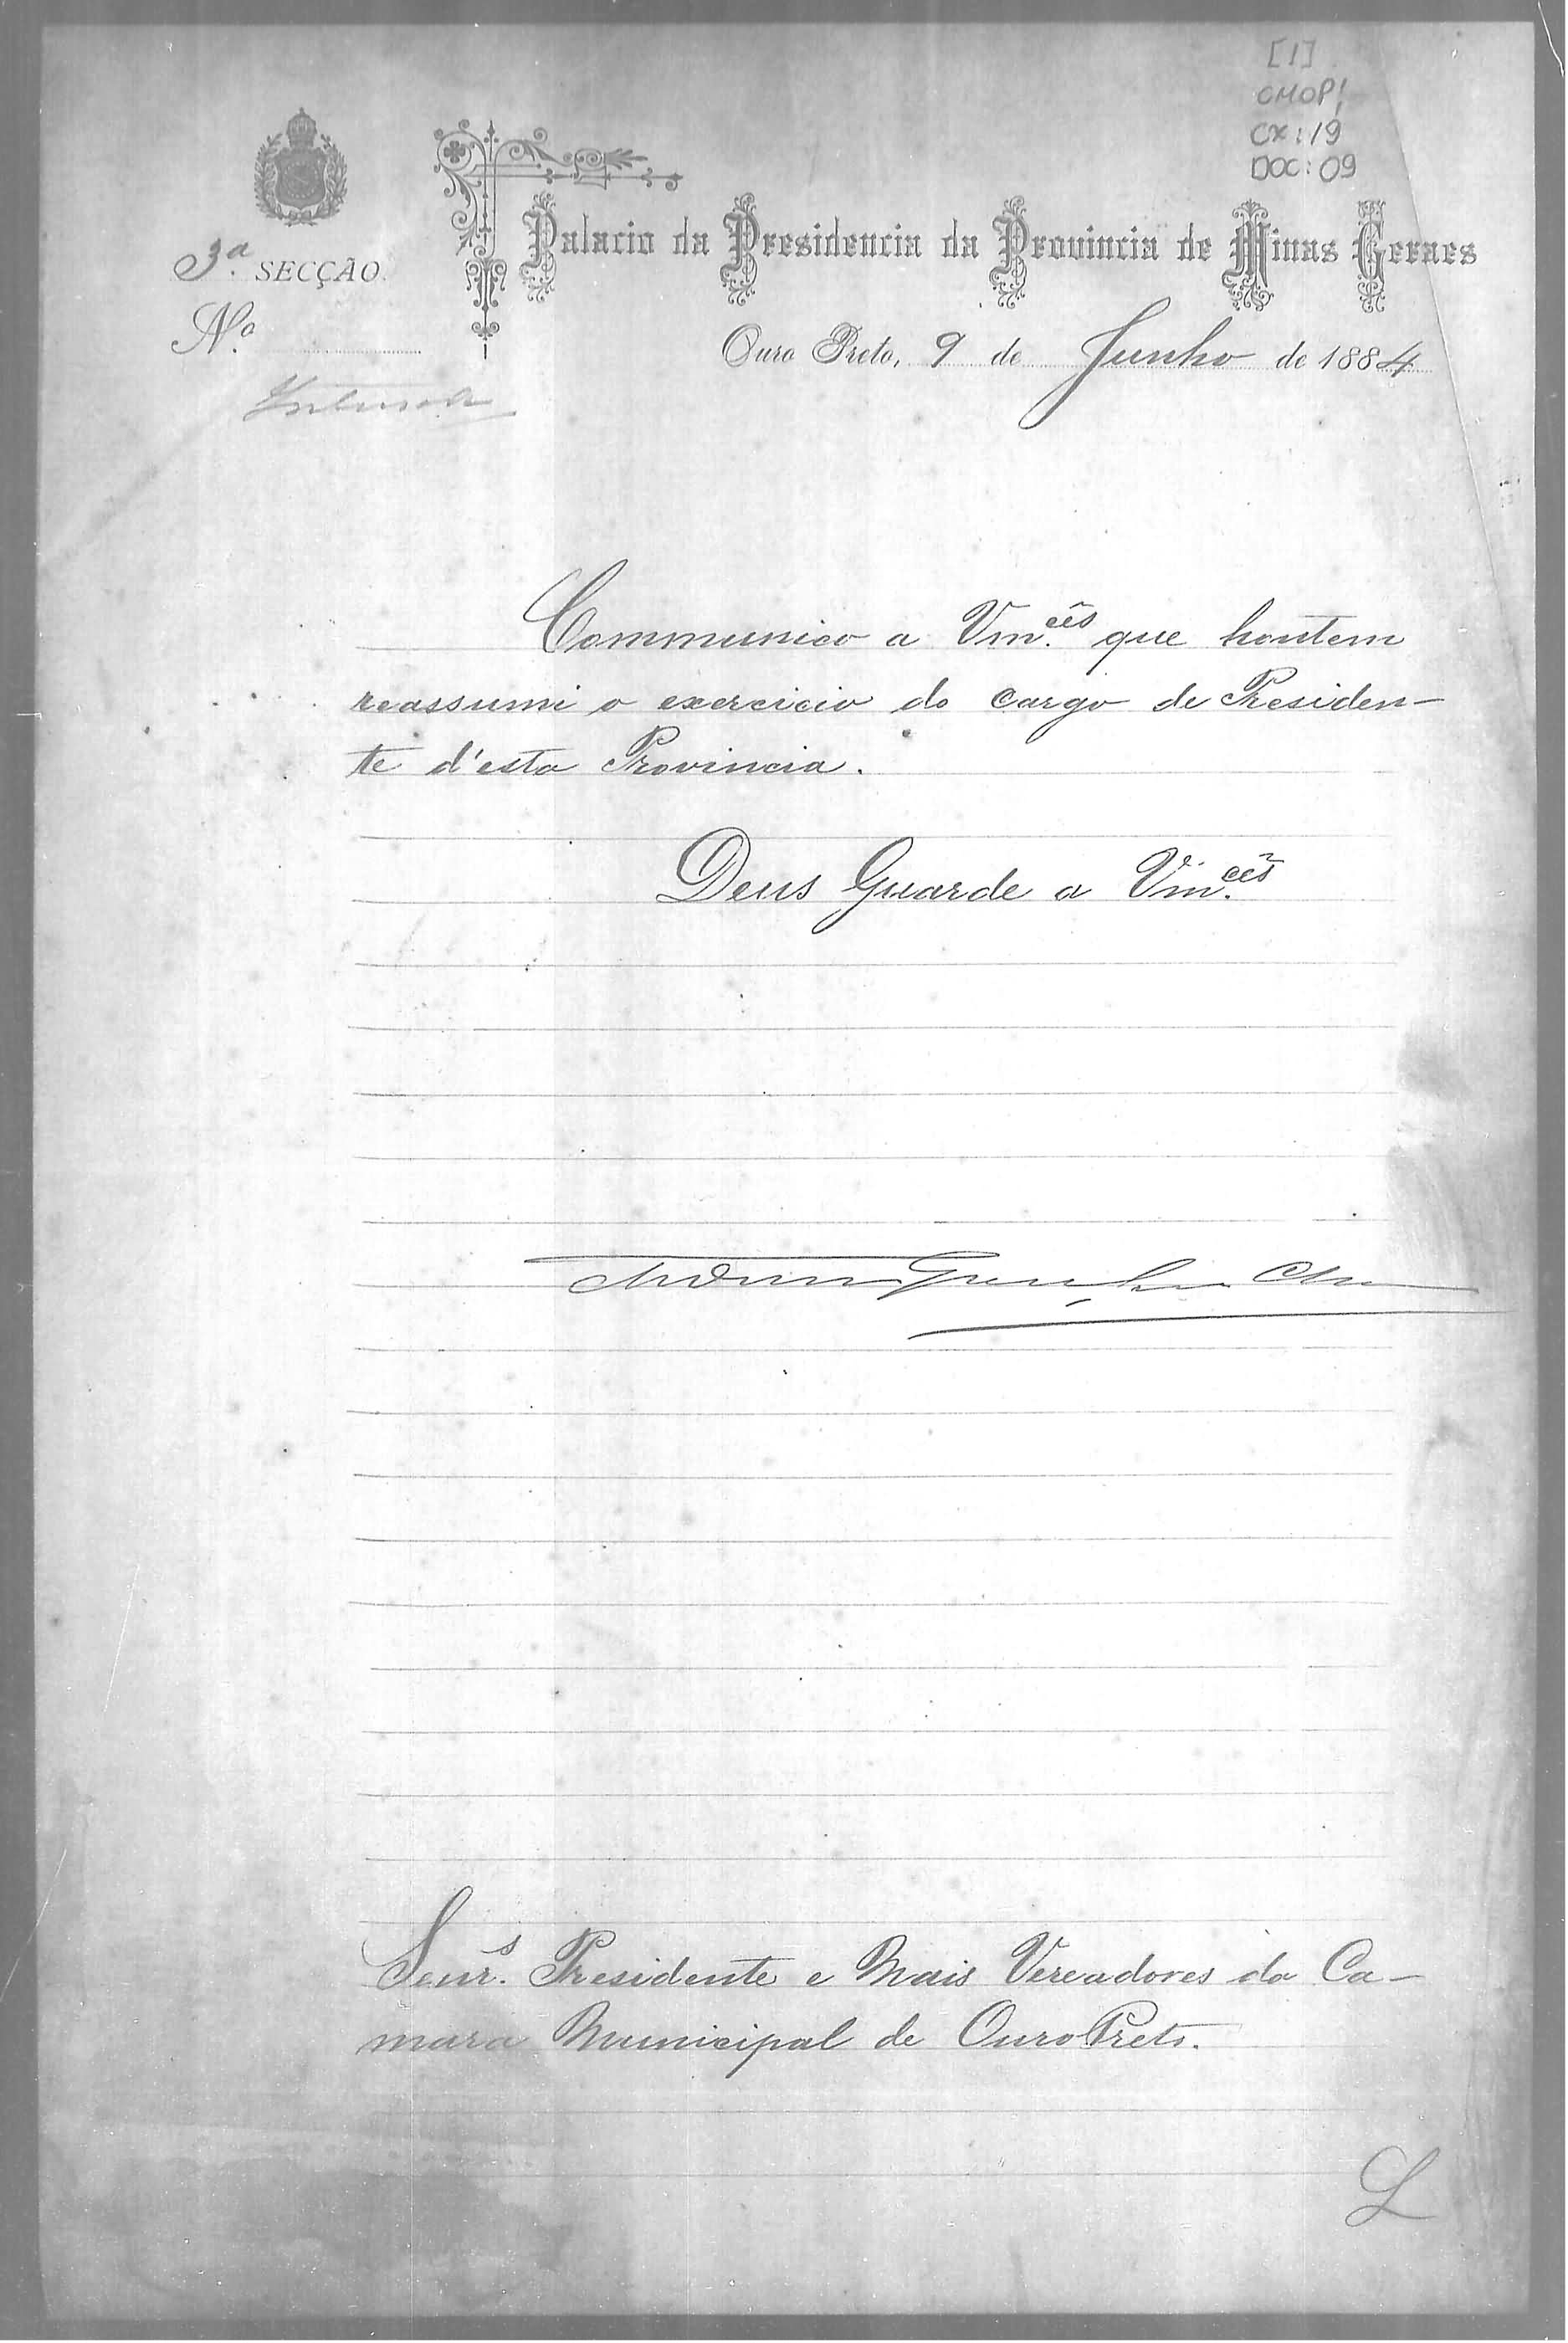 [1]
CMOP!
CX: 19
DOC: 09
Palacio da Presidencia da Provincia de Minas Geraes
3.ª SECÇÃO.
N.º
Ouro Preto, 9 de Junho de 1884
Communico a Vm.cês que hontem
reassumi o exercicio do cargo de Presiden-
te d'esta Provincia.
Deus Guarde a Vm.cês
Senr.s Presidente e Mais Vereadores da Ca-
mara Municipal de Ouro Preto.